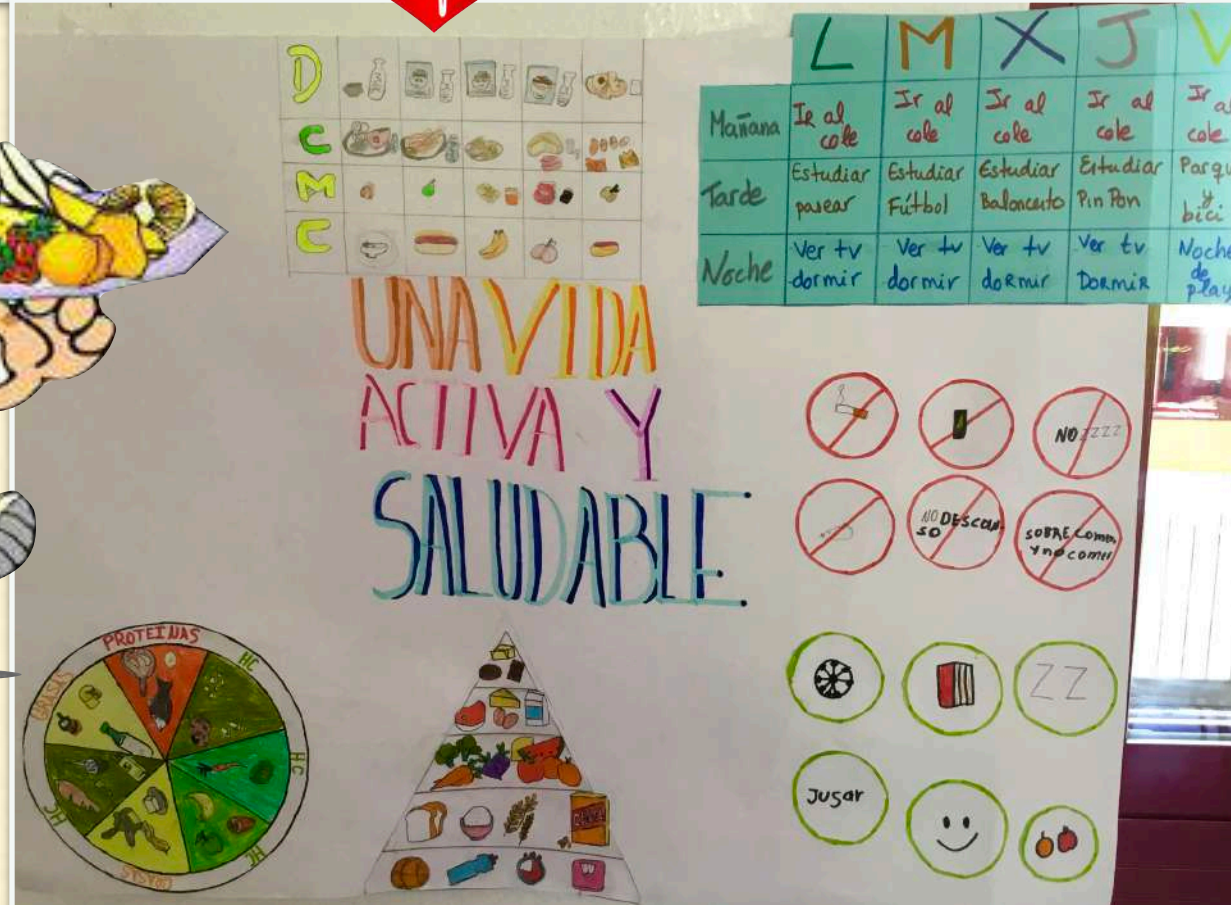 D
C
M
C
L M X J V
Mañana Ir al cole Ir al cole Ir al cole Ir al cole Ir al cole
Tarde Estudiar pasear Estudiar Fútbol Estudiar Baloncesto Estudiar Pin Pon y bici
Noche Ver tv dormir Ver tv dormir Ver tv dormir Ver tv DORMIR Noche de play
UNA VIDA
ACTIVA Y
SALUDABLE
NO ZZZZ
NO DESCAN
SO
SOBRE comer
Y no comer
PROTEINAS
HC
HC
HC
GRASAS
HC
GRASAS
ZZ
Jugar